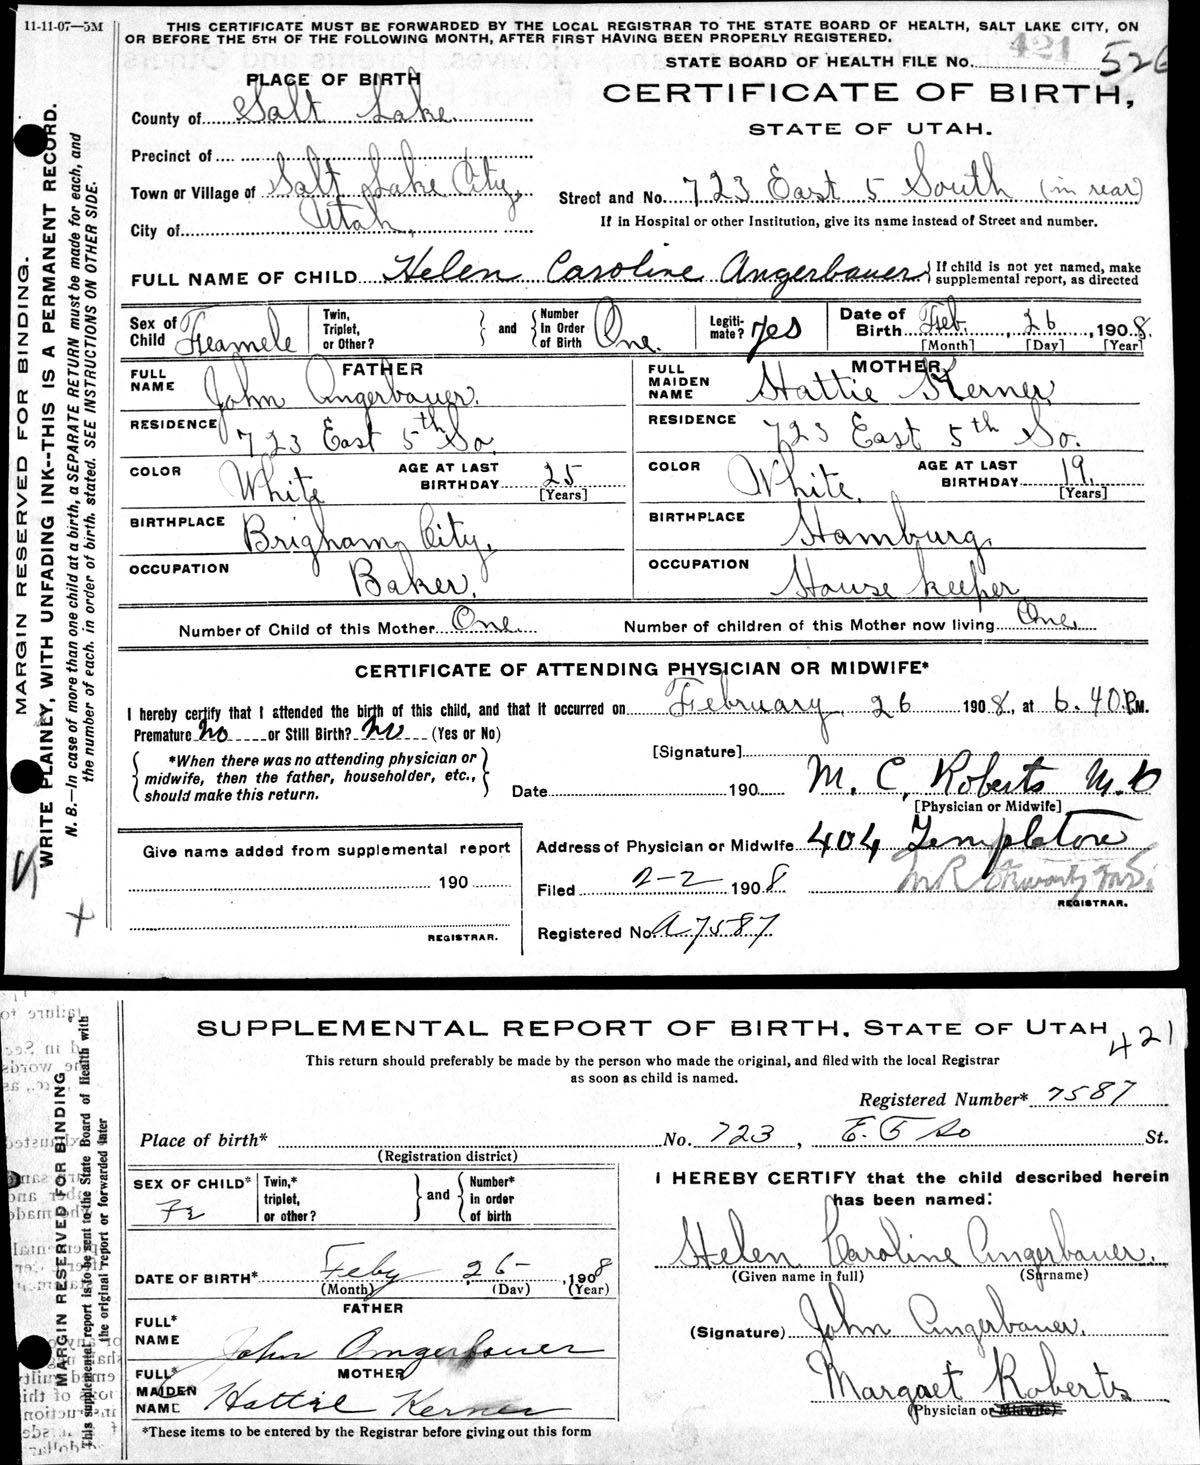 11-11-07—5M
THIS CERTIFICATE MUST BE FORWARDED BY THE LOCAL REGISTRAR TO THE STATE BOARD OF HEALTH, SALT LAKE CITY, ON
OR BEFORE THE 5TH OF THE FOLLOWING MONTH, AFTER FIRST HAVING BEEN PROPERLY REGISTERED.
421
STATE BOARD OF HEALTH FILE No. 526
PLACE OF BIRTH
CERTIFICATE OF BIRTH,
STATE OF UTAH.
County of Salt Lake
Precinct of
Town or Village of Salt Lake City,
Street and No. 723 East 5 South (in rear)
City of Utah,
If in Hospital or other Institution, give its name instead of Street and number.
FULL NAME OF CHILD Helen Caroline Angerbauer { If child is not yet named, make supplemental report, as directed
Sex of Child Feamele
Twin, Triplet, or Other? } and { Number In Order of Birth One.
Legitimate? yes
Date of Birth Feb. 26, 1908.
[Month] [Day] [Year]
FATHER
FULL NAME John Angerbauer.
MOTHER
FULL MAIDEN NAME Hattie Kerner
RESIDENCE 723 East 5th So.
RESIDENCE 723 East 5th So.
COLOR White AGE AT LAST BIRTHDAY 25 [Years]
COLOR White. AGE AT LAST BIRTHDAY 19. [Years]
BIRTHPLACE Brigham City,
BIRTHPLACE Hamburg,
OCCUPATION Baker.
OCCUPATION House keeper
Number of Child of this Mother One
Number of children of this Mother now living One.
CERTIFICATE OF ATTENDING PHYSICIAN OR MIDWIFE*
I hereby certify that I attended the birth of this child, and that it occurred on February 26 1908, at 6.40 P.M.
Premature No or Still Birth? no (Yes or No)
*When there was no attending physician or
midwife, then the father, householder, etc.,
should make this return.
[Signature]
Date 190 M. C. Roberts M.D
[Physician or Midwife]
Give name added from supplemental report
190
REGISTRAR.
Address of Physician or Midwife 404 Templeton
Filed 2-2 1908
REGISTRAR.
Registered No. A 7587
MARGIN RESERVED FOR BINDING.
WRITE PLAINLY, WITH UNFADING INK--THIS IS A PERMANENT RECORD.
N. B.—In case of more than one child at a birth, a SEPARATE RETURN must be made for each, and
the number of each, in order of birth, stated. SEE INSTRUCTIONS ON OTHER SIDE.
SUPPLEMENTAL REPORT OF BIRTH, STATE OF UTAH
421
This return should preferably be made by the person who made the original, and filed with the local Registrar
as soon as child is named.
Registered Number* 7587
Place of birth* No. 723, E. 5 So St.
(Registration district)
SEX OF CHILD* Fe
Twin,* triplet, or other? } and { Number* in order of birth
I HEREBY CERTIFY that the child described herein
has been named:
Helen Caroline Angerbauer.
(Given name in full) (Surname)
DATE OF BIRTH* Feby 26 1908
(Month) (Day) (Year)
FATHER
FULL* NAME John Angerbauer
(Signature) John Angerbauer.
MOTHER
FULL* MAIDEN NAME Hattie Kerner
Margaet Roberts
(Physician or Midwife)
*These items to be entered by the Registrar before giving out this form
MARGIN RESERVED FOR BINDING
This supplemental report is to be sent to the State Board of Health with
the original report or forwarded later